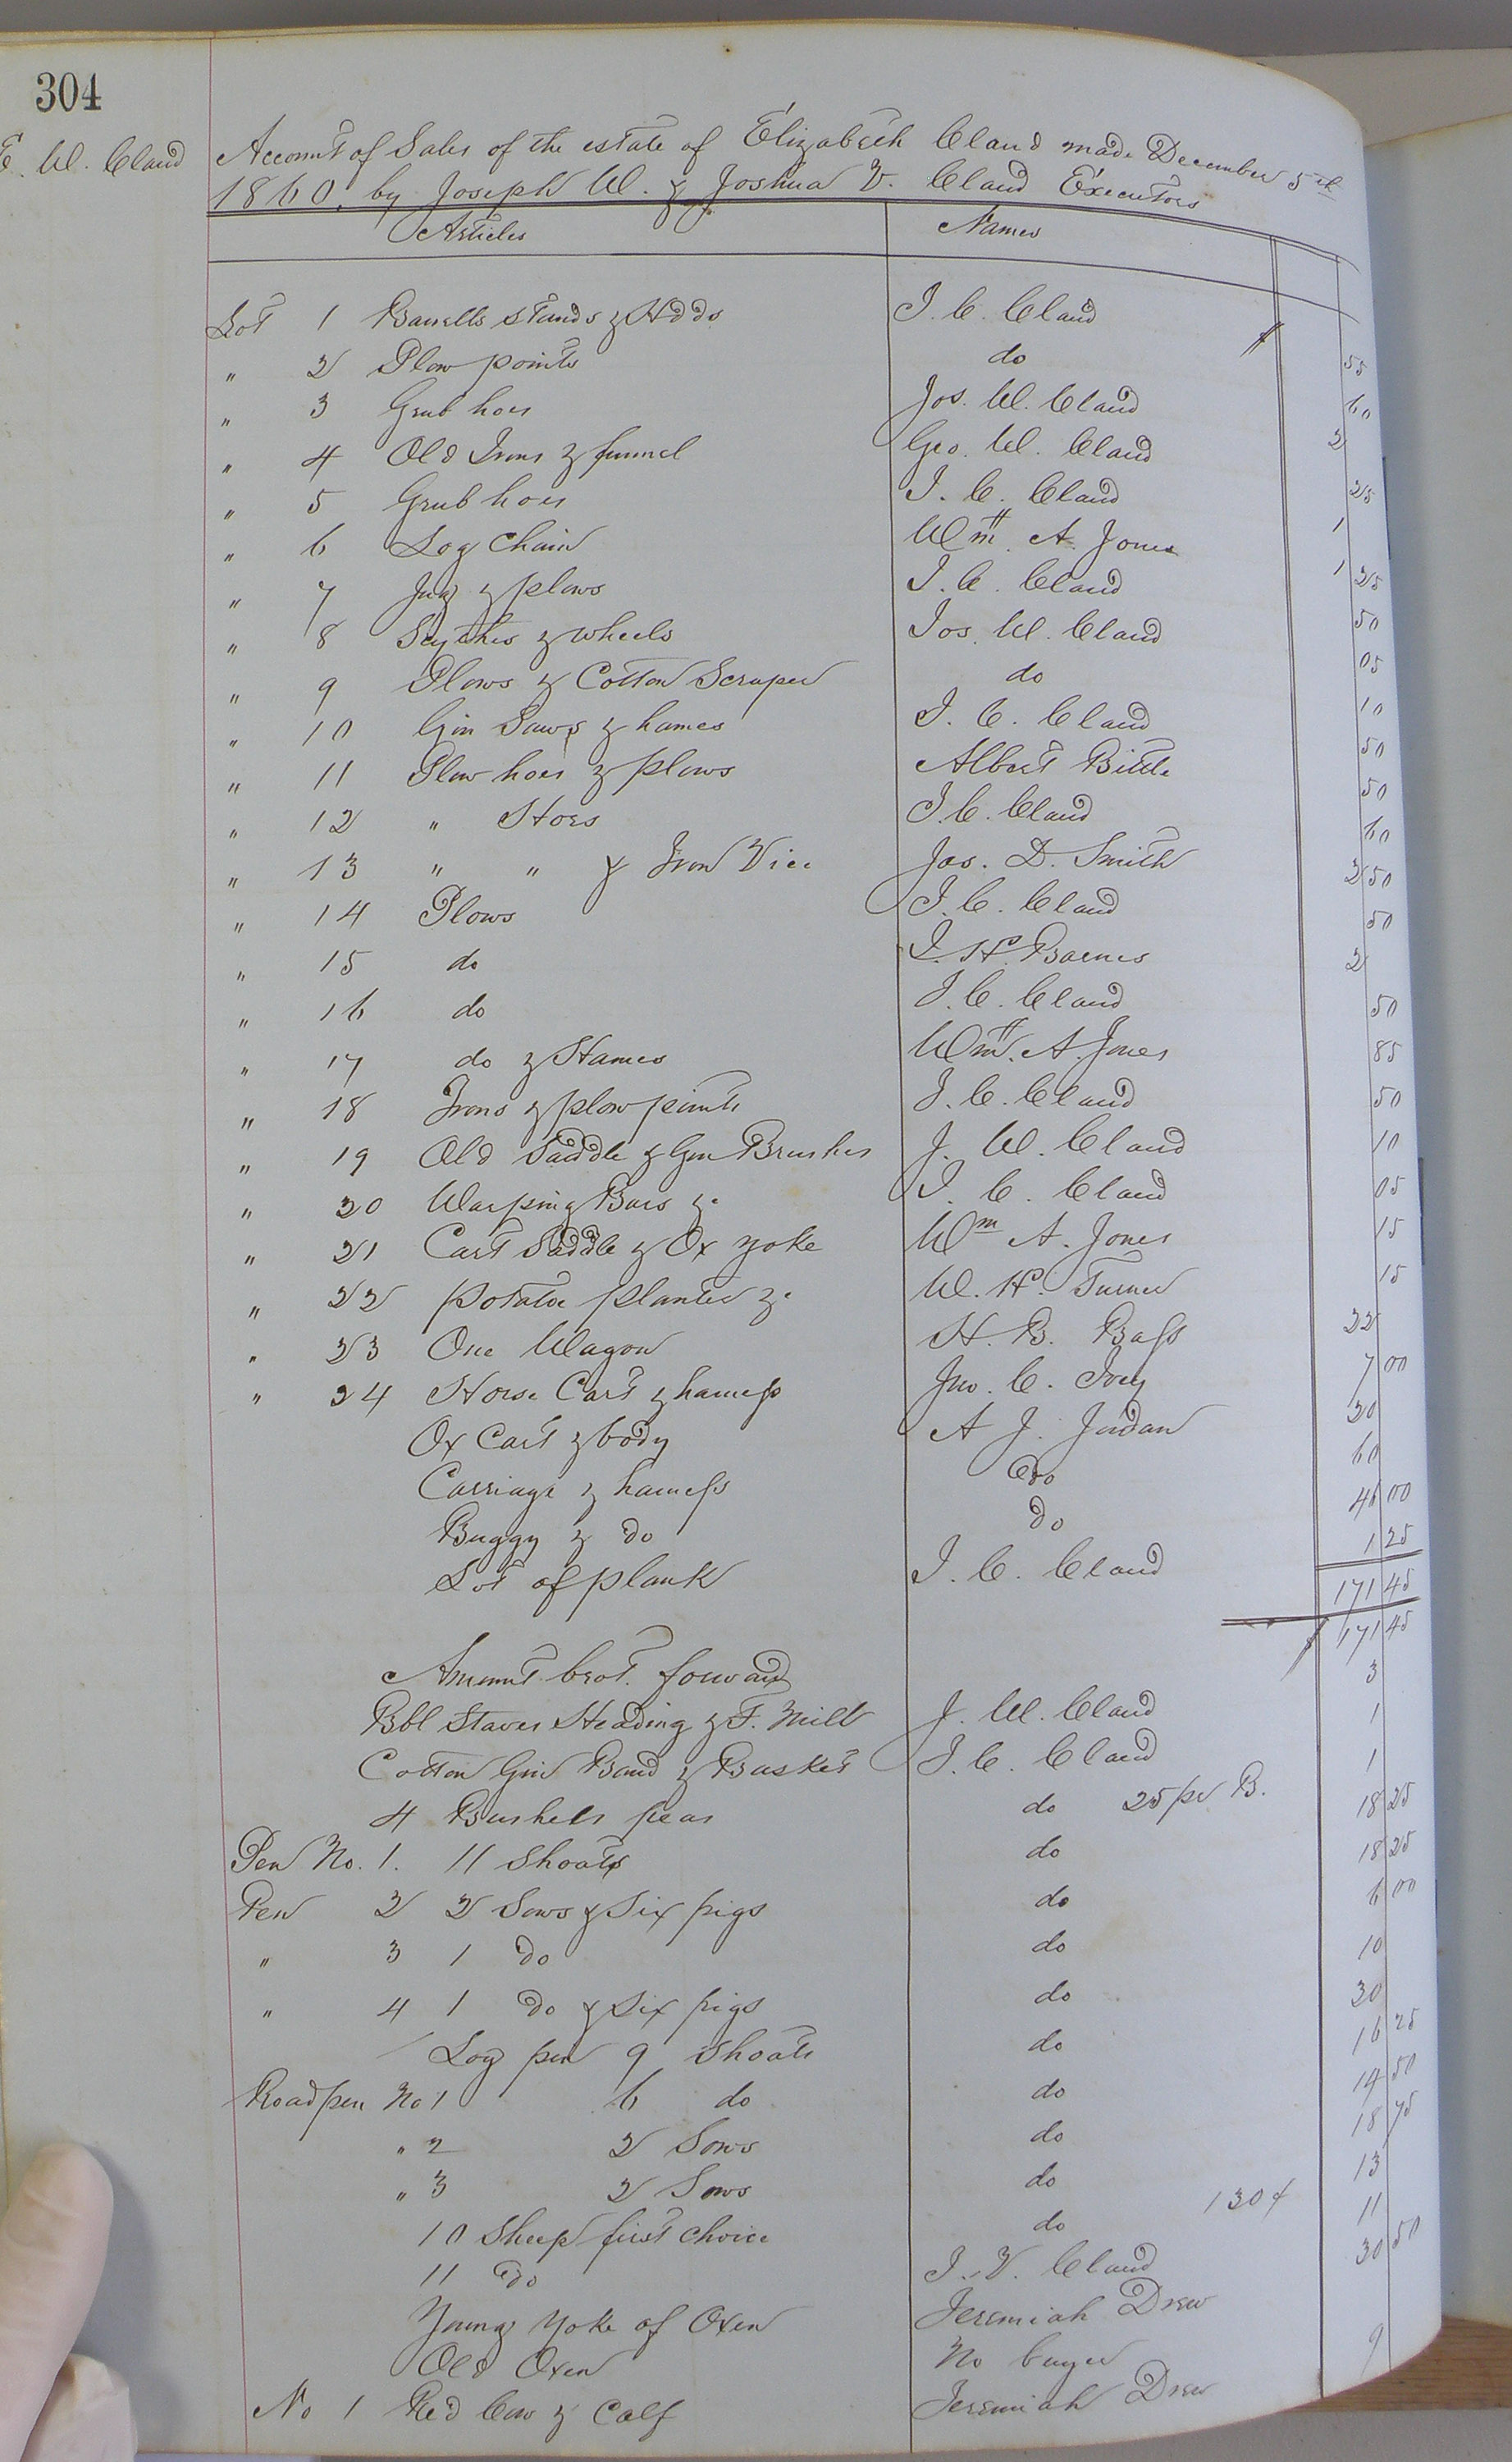 304
E. W. Claud
Account of Sales of the estate of Elizabeth Claud made December 5th
1860. by Joseph W. & Joshua V. Claud Executors
Articles Names
Lot 1 Barrells stands & Hdds J. C. Claud
" 2 Plow points do 55
" 3 Grub hoes Jos. W. Claud 60
" 4 Old Irons & funnel Geo. W. Claud 2
" 5 Grub hoes J. C. Claud 25
" 6 Log Chain Wm A. Jones 1
" 7 Jug & plows J. C. Claud 1 25
" 8 Scythes & wheels Jos. W. Claud 50
" 9 Plows & Cotton Scraper do 05
" 10 Gin Saws & hames J. C. Claud 10
" 11 Plow hoes & plows Albert Bittle 50
" 12 " Hoes J. C. Claud 50
" 13 " " & Iron Vice Jas. D. Smith 60
" 14 Plows J. C. Claud 2 50
" 15 do J. H. Barnes 50
" 16 do J. C. Claud 2
" 17 do & Hames Wm. A. Jones 50
" 18 Irons & plow points J. C. Claud 85
" 19 Old Saddle & Gin Brushes J. W. Claud 50
" 20 Warping Bars &c J. C. Claud 10
" 21 Cart Saddle & Ox yoke Wm A. Jones 05
" 22 potatoe planter &c W. H. Turner 15
" 23 One Wagon H. B. Bass 15
" 24 Horse Cart & harness Jno. C. Ivey 22
Ox Cart & body A J. Jordan 7 00
Carriage & harness do 20
Buggy & do do 60
Lot of plank J. C. Claud 46 00
1 25
171 45
Amount brot. forward 171 45
Bbl Staves Heading & F. Mill J. W. Claud 3
Cotton Gin Band & Basket J. C. Claud 1
4 Bushels peas do 25 pr B. 1
Pen No. 1. 11 Shoats do 18 25
Pen 2 2 Sows & Six pigs do 18 25
" 3 1 do do 6 00
" 4 1 do & Six pigs do 10
Log pen 9 Shoats do 30
Road pen No 1 6 do do 16 25
" 2 2 Sows do 14 50
" 3 2 Sows do 18 75
10 Sheep first choice do 130 13
11 do J. V. Claud 11
Young Yoke of Oxen Jeremiah Drew 30 50
Old Oxen No buyer
No 1 Red Cow & Calf Jeremiah Drew 9